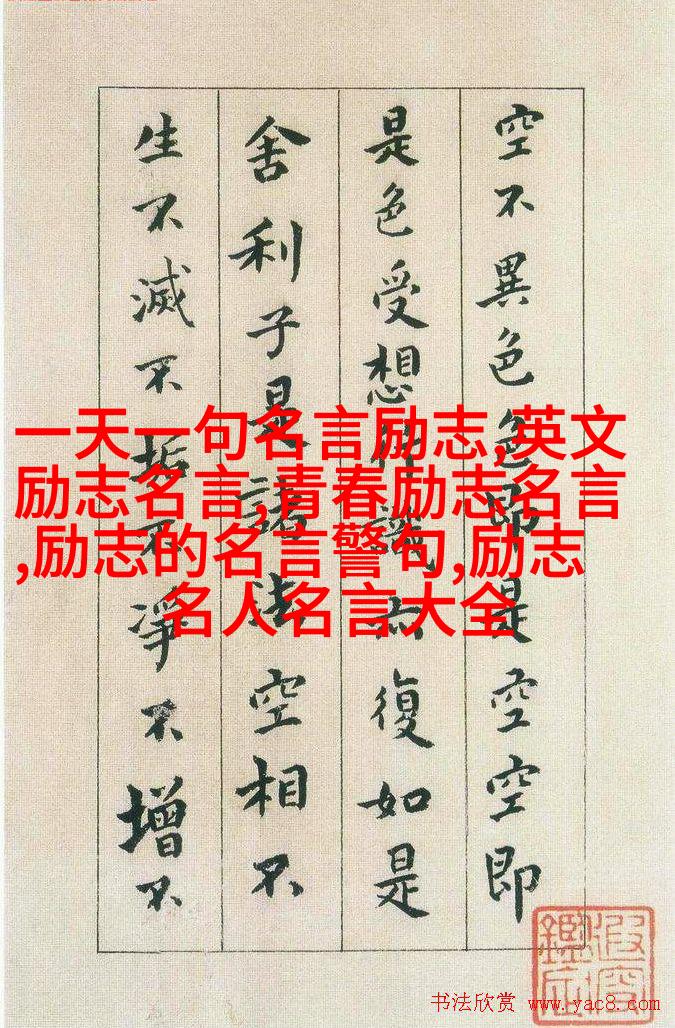 空不異色色即是空空即
是色受想行識亦復如是
舍利子是諸法空相不
生不滅不垢不淨不增不
一天一句名言励志,英文
励志名言,青春励志名言
,励志的名言警句,励志
名人名言大全
书法欣赏 www.yac8.com